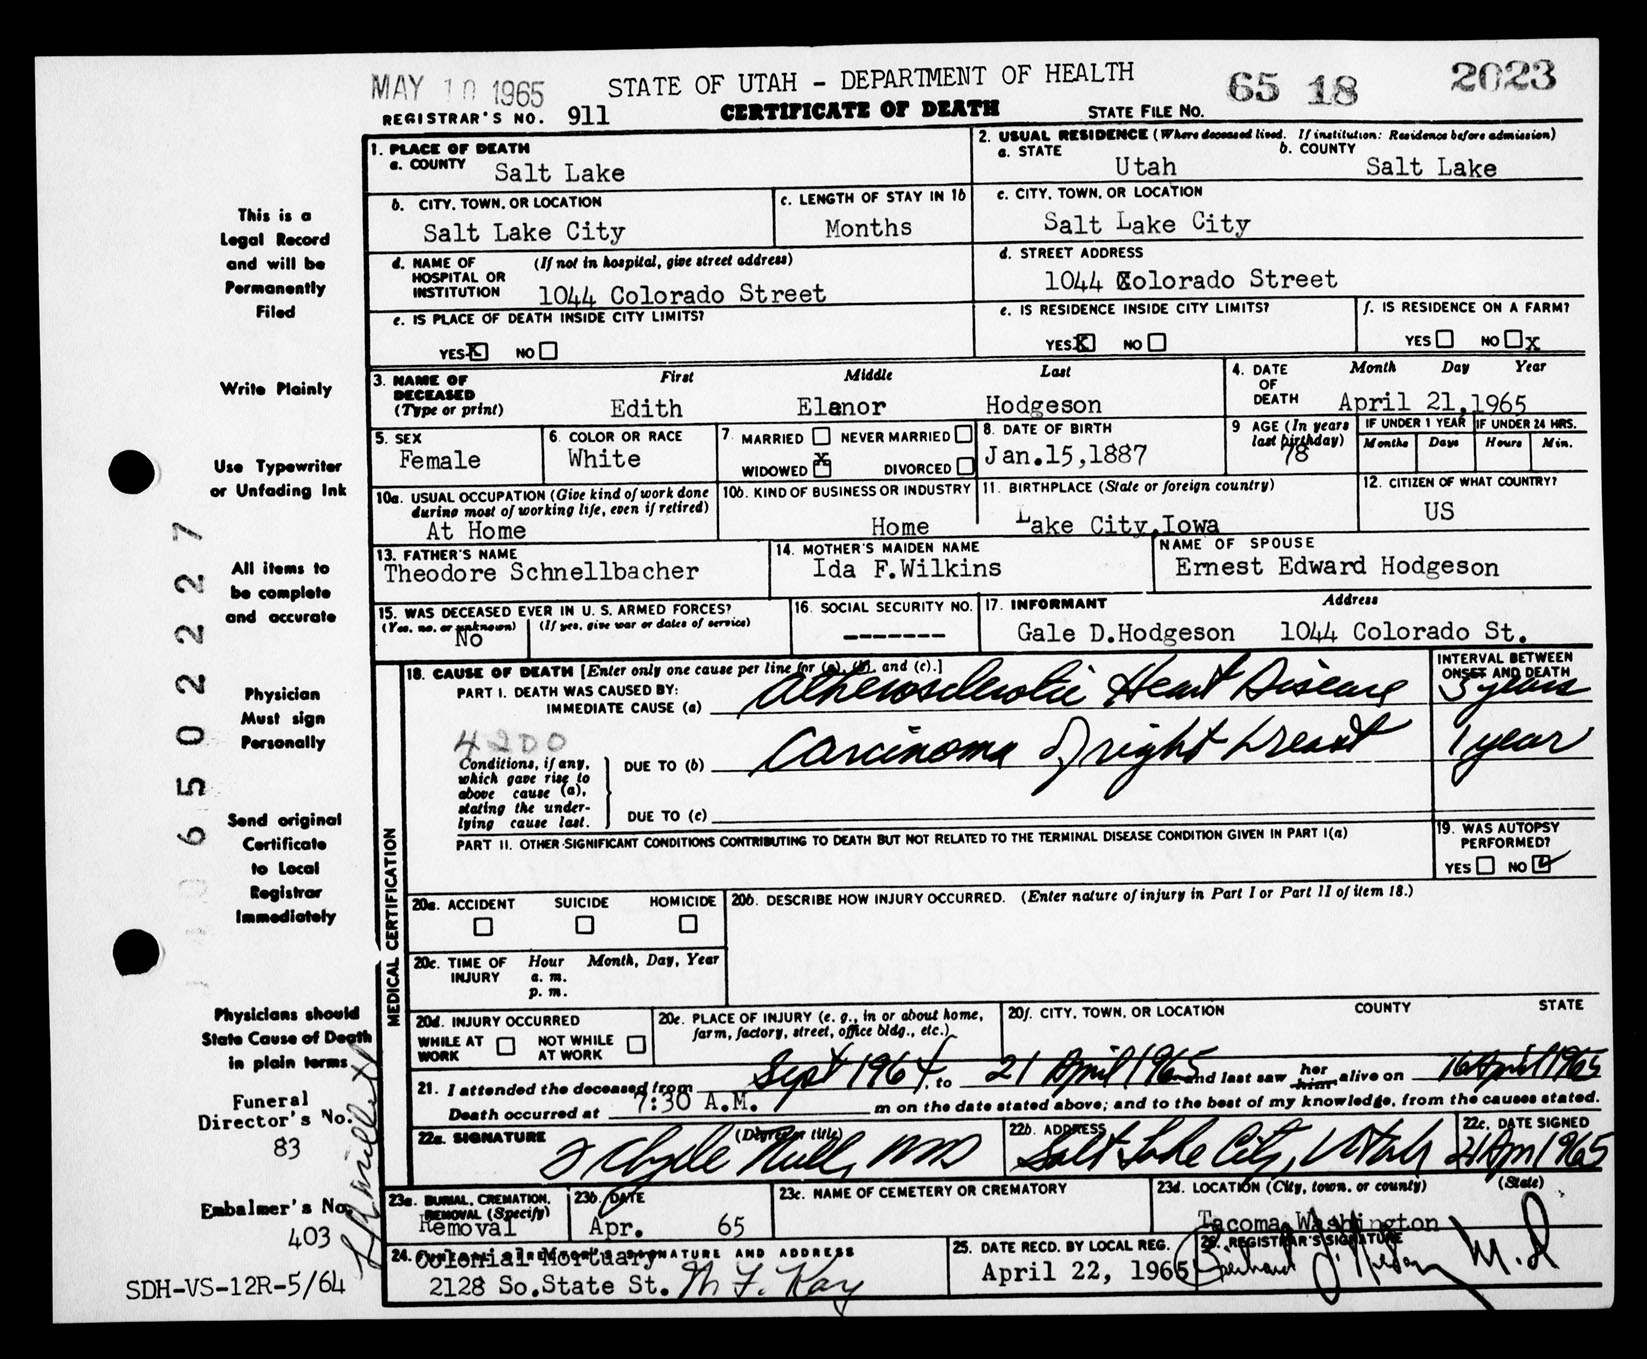 MAY 10 1965
STATE OF UTAH - DEPARTMENT OF HEALTH
65 18 2023
REGISTRAR'S NO. 911
CERTIFICATE OF DEATH
STATE FILE NO.
This is a
Legal Record
and will be
Permanently
Filed
Write Plainly
Use Typewriter
or Unfading Ink
All items to
be complete
and accurate
Physician
Must sign
Personally
Send original
Certificate
to Local
Registrar
Immediately
Physicians should
State Cause of Death
in plain terms
Funeral
Director's No.
83
Embalmer's No.
403
SDH-VS-12R-5/64
65022227
1. PLACE OF DEATH
a. COUNTY Salt Lake
2. USUAL RESIDENCE (Where deceased lived. If institution: Residence before admission)
a. STATE Utah
b. COUNTY Salt Lake
b. CITY, TOWN, OR LOCATION
Salt Lake City
c. LENGTH OF STAY IN 1b
Months
c. CITY, TOWN, OR LOCATION
Salt Lake City
d. NAME OF HOSPITAL OR INSTITUTION (If not in hospital, give street address)
1044 Colorado Street
d. STREET ADDRESS
1044 Colorado Street
e. IS PLACE OF DEATH INSIDE CITY LIMITS?
YES X NO
e. IS RESIDENCE INSIDE CITY LIMITS?
YES X NO
f. IS RESIDENCE ON A FARM?
YES NO X
3. NAME OF DECEASED (Type or print)
First Middle Last
Edith Elanor Hodgeson
4. DATE OF DEATH
Month Day Year
April 21, 1965
5. SEX
Female
6. COLOR OR RACE
White
7. MARRIED NEVER MARRIED
WIDOWED X DIVORCED
8. DATE OF BIRTH
Jan.15,1887
9 AGE (In years last birthday)
78
IF UNDER 1 YEAR
Months Days
IF UNDER 24 HRS.
Hours Min.
10a. USUAL OCCUPATION (Give kind of work done during most of working life, even if retired)
At Home
10b. KIND OF BUSINESS OR INDUSTRY
Home
11. BIRTHPLACE (State or foreign country)
Lake City, Iowa
12. CITIZEN OF WHAT COUNTRY?
US
13. FATHER'S NAME
Theodore Schnellbacher
14. MOTHER'S MAIDEN NAME
Ida F.Wilkins
NAME OF SPOUSE
Ernest Edward Hodgeson
15. WAS DECEASED EVER IN U. S. ARMED FORCES?
(Yes, no, or unknown) (If yes, give war or dates of service)
No
16. SOCIAL SECURITY NO.
-------
17. INFORMANT Address
Gale D.Hodgeson 1044 Colorado St.
MEDICAL CERTIFICATION
18. CAUSE OF DEATH [Enter only one cause per line for (a), (b), and (c).]
INTERVAL BETWEEN ONSET AND DEATH
PART I. DEATH WAS CAUSED BY:
IMMEDIATE CAUSE (a) Atherosclerotic Heart Disease 5 years
4200
Conditions, if any, which gave rise to above cause (a), stating the underlying cause last.
DUE TO (b) Carcinoma of right breast 1 year
DUE TO (c)
PART II. OTHER SIGNIFICANT CONDITIONS CONTRIBUTING TO DEATH BUT NOT RELATED TO THE TERMINAL DISEASE CONDITION GIVEN IN PART I(a)
19. WAS AUTOPSY PERFORMED?
YES NO
20a. ACCIDENT SUICIDE HOMICIDE
20b. DESCRIBE HOW INJURY OCCURRED. (Enter nature of injury in Part I or Part II of item 18.)
20c. TIME OF INJURY Hour Month, Day, Year
a. m.
p. m.
20d. INJURY OCCURRED
WHILE AT WORK NOT WHILE AT WORK
20e. PLACE OF INJURY (e. g., in or about home, farm, factory, street, office bldg., etc.)
20f. CITY, TOWN, OR LOCATION COUNTY STATE
21. I attended the deceased from Sept 1964, to 21 April 1965 and last saw her him alive on 16 April 1965
Death occurred at 7:30 A.M. m on the date stated above; and to the best of my knowledge, from the causes stated.
22a. SIGNATURE (Degree or title)
Clyde Null, MD
22b. ADDRESS
Salt Lake City, Utah
22c. DATE SIGNED
21 Apr 1965
23a. BURIAL, CREMATION, REMOVAL (Specify)
Removal
23b. DATE
Apr. 65
23c. NAME OF CEMETERY OR CREMATORY
23d. LOCATION (City, town, or county) (State)
Tacoma, Washington
24. FUNERAL DIRECTOR'S SIGNATURE AND ADDRESS
Colonial Mortuary
2128 So.State St. M F. Kay
25. DATE RECD. BY LOCAL REG.
April 22, 1965
26. REGISTRAR'S SIGNATURE
M.D